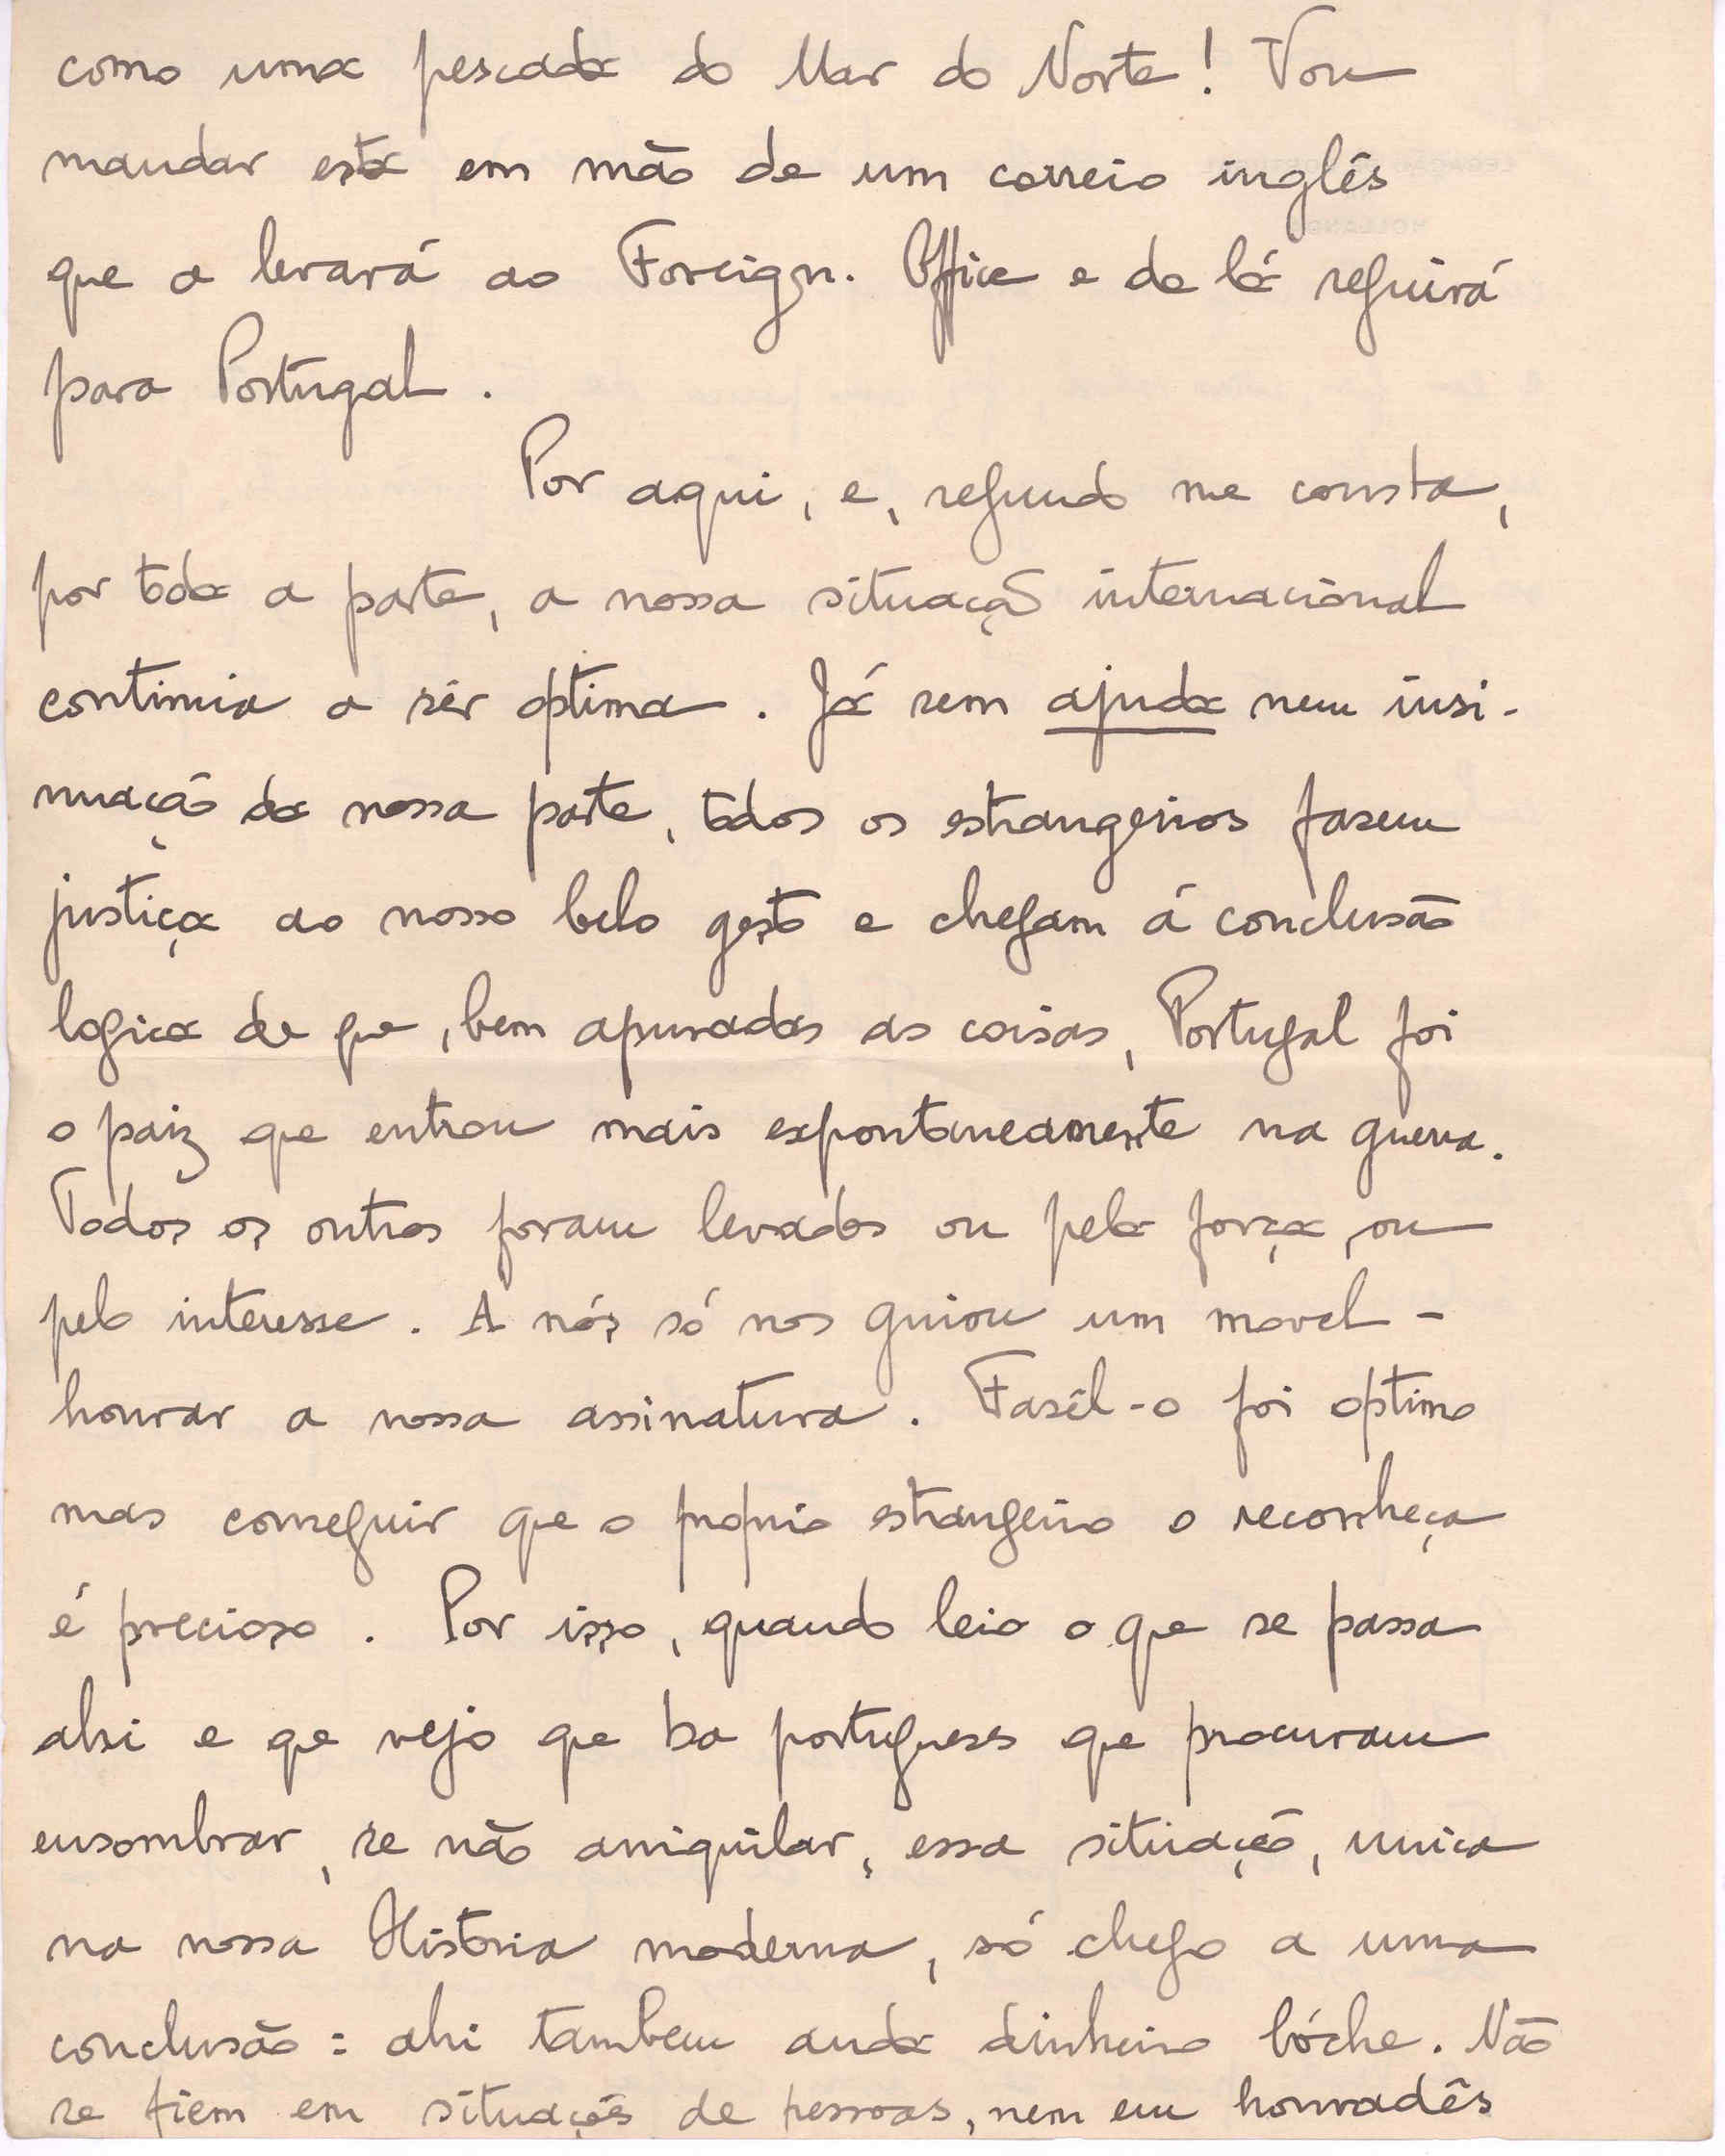 como uma pescada do Mar do Norte! Vou
mandar esta em mão de um correio inglês
que a levará ao Foreign. Office e de lá seguirá
para Portugal.
Por aqui, e, segundo me consta,
por toda a parte, a nossa situação internacional
continua a sêr optima. Já sem ajuda nem insi-
nuação da nossa parte, todos os estrangeiros fasem
justiça ao nosso belo gesto e chegam á conclusão
logica de que, bem apuradas as coisas, Portugal foi
o paiz que entrou mais expontaneamente na guerra.
Todos os outros foram levados ou pela força, ou
pelo interesse. A nós só nos guiou um movel -
honrar a nossa assinatura. Fasêl-o foi optimo
mas conseguir que o proprio estrangeiro o reconheça
é precioso. Por isso, quando leio o que se passa
ahi e que vejo que ha portugueses que procuram
ensombrar, se não aniquilar, essa situação, unica
na nossa Historia moderna, só chego a uma
conclusão: ahi tambem anda dinheiro bóche. Não
se fiem em situações de pessoas, nem em honradês